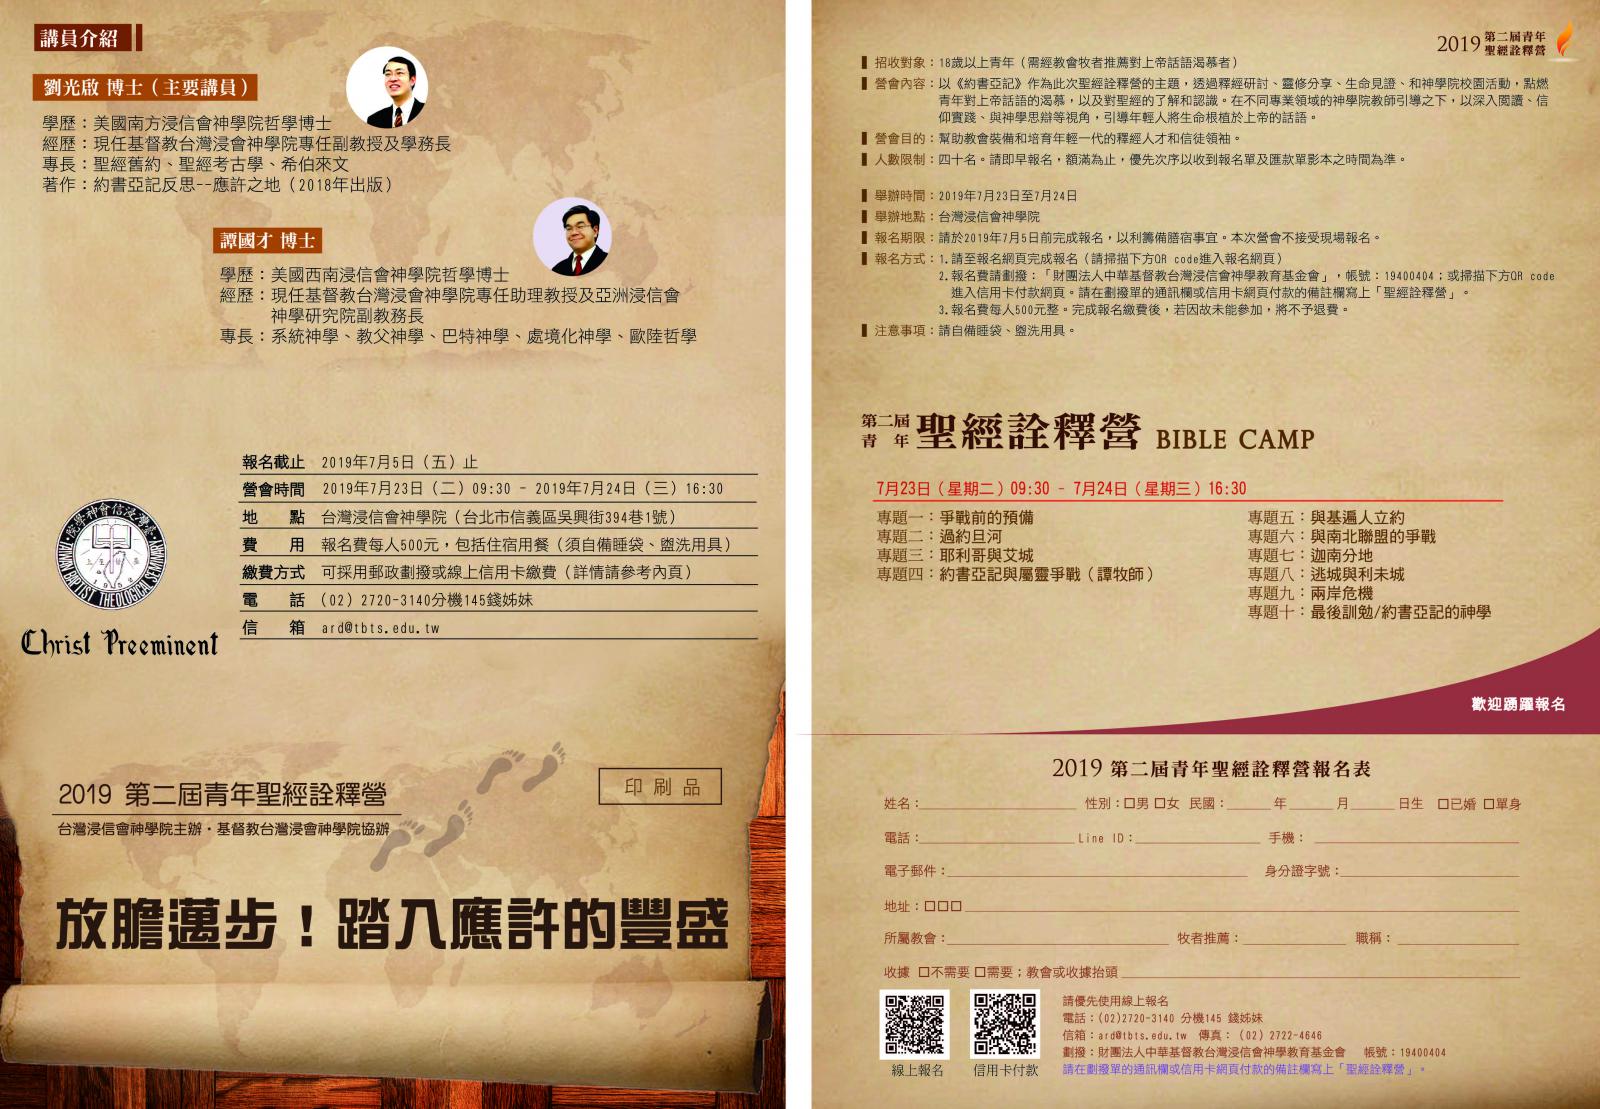 講員介紹
劉光啟 博士（主要講員）
學歷：美國南方浸信會神學院哲學博士
經歷：現任基督教台灣浸會神學院專任副教授及學務長
專長：聖經舊約、聖經考古學、希伯來文
著作：約書亞記反思--應許之地（2018年出版）
譚國才 博士
學歷：美國西南浸信會神學院哲學博士
經歷：現任基督教台灣浸會神學院專任助理教授及亞洲浸信會
神學研究院副教務長
專長：系統神學、教父神學、巴特神學、處境化神學、歐陸哲學
報名截止 2019年7月5日（五）止
營會時間 2019年7月23日（二）09:30 - 2019年7月24日（三）16:30
地 點 台灣浸信會神學院（台北市信義區吳興街394巷1號）
費 用 報名費每人500元，包括住宿用餐（須自備睡袋、盥洗用具）
繳費方式 可採用郵政劃撥或線上信用卡繳費（詳情請參考內頁）
電 話 （02）2720-3140分機145錢姊妹
信 箱 ard@tbts.edu.tw
臺灣浸信會神學院
TAIWAN BAPTIST THEOLOGICAL SEMINARY
1952
Christ Preeminent
2019 第二屆青年聖經詮釋營
台灣浸信會神學院主辦・基督教台灣浸會神學院協辦
印刷品
放膽邁步！踏入應許的豐盛
2019 第二屆青年
聖經詮釋營
招收對象：18歲以上青年（需經教會牧者推薦對上帝話語渴慕者）
營會內容：以《約書亞記》作為此次聖經詮釋營的主題，透過釋經研討、靈修分享、生命見證、和神學院校園活動，點燃
青年對上帝話語的渴慕，以及對聖經的了解和認識。在不同專業領域的神學院教師引導之下，以深入閱讀、信
仰實踐、與神學思辯等視角，引導年輕人將生命根植於上帝的話語。
營會目的：幫助教會裝備和培育年輕一代的釋經人才和信徒領袖。
人數限制：四十名。請即早報名，額滿為止，優先次序以收到報名單及匯款單影本之時間為準。
舉辦時間：2019年7月23日至7月24日
舉辦地點：台灣浸信會神學院
報名期限：請於2019年7月5日前完成報名，以利籌備膳宿事宜。本次營會不接受現場報名。
報名方式：1.請至報名網頁完成報名（請掃描下方QR code進入報名網頁）
2.報名費請劃撥：「財團法人中華基督教台灣浸信會神學教育基金會」，帳號：19400404；或掃描下方QR code
進入信用卡付款網頁。請在劃撥單的通訊欄或信用卡網頁付款的備註欄寫上「聖經詮釋營」。
3.報名費每人500元整。完成報名繳費後，若因故未能參加，將不予退費。
注意事項：請自備睡袋、盥洗用具。
第二屆
青 年 聖經詮釋營 BIBLE CAMP
7月23日（星期二）09:30 - 7月24日（星期三）16:30
專題一：爭戰前的預備
專題二：過約旦河
專題三：耶利哥與艾城
專題四：約書亞記與屬靈爭戰（譚牧師）
專題五：與基遍人立約
專題六：與南北聯盟的爭戰
專題七：迦南分地
專題八：逃城與利未城
專題九：兩岸危機
專題十：最後訓勉/約書亞記的神學
歡迎踴躍報名
2019 第二屆青年聖經詮釋營報名表
姓名： 性別：□男 □女 民國： 年 月 日生 □已婚 □單身
電話： Line ID： 手機：
電子郵件： 身分證字號：
地址：□□□
所屬教會： 牧者推薦： 職稱：
收據 □不需要 □需要；教會或收據抬頭
線上報名
信用卡付款
請優先使用線上報名
電話：(02)2720-3140 分機145 錢姊妹
信箱：ard@tbts.edu.tw 傳真：（02）2722-4646
劃撥：財團法人中華基督教台灣浸信會神學教育基金會 帳號：19400404
請在劃撥單的通訊欄或信用卡網頁付款的備註欄寫上「聖經詮釋營」。